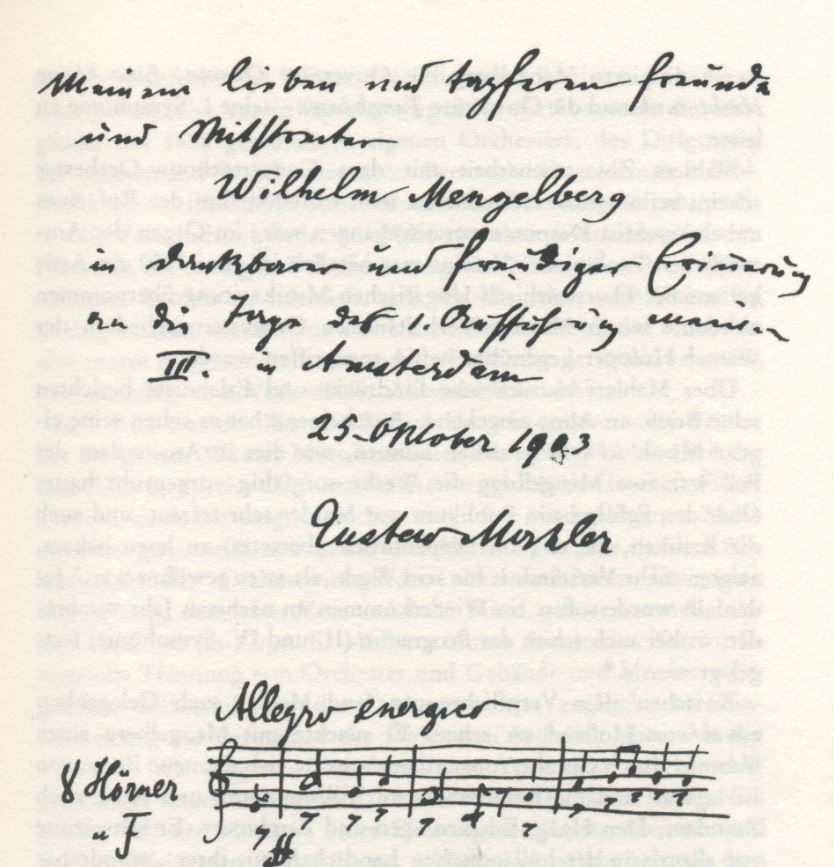 Meinem lieben und tapferen Freunde
und Mitstreiter
Wilhelm Mengelberg
in dankbarer und freudiger Erinnerung
an die Tage der Aufführung meiner
III. in Amsterdam
25. Oktober 1903
Gustav Mahler
Allegro energico
8 Hörner
in F
ff